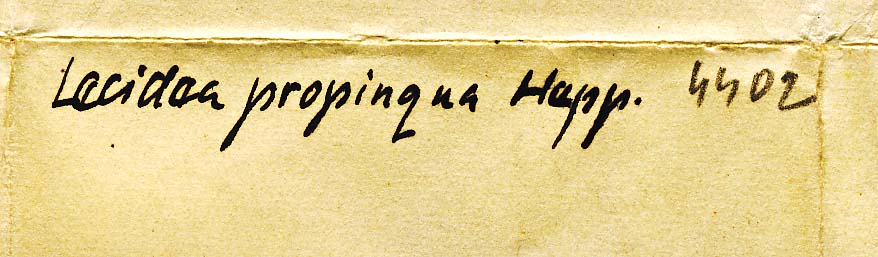 Lecidea propinqua Hepp. 4402